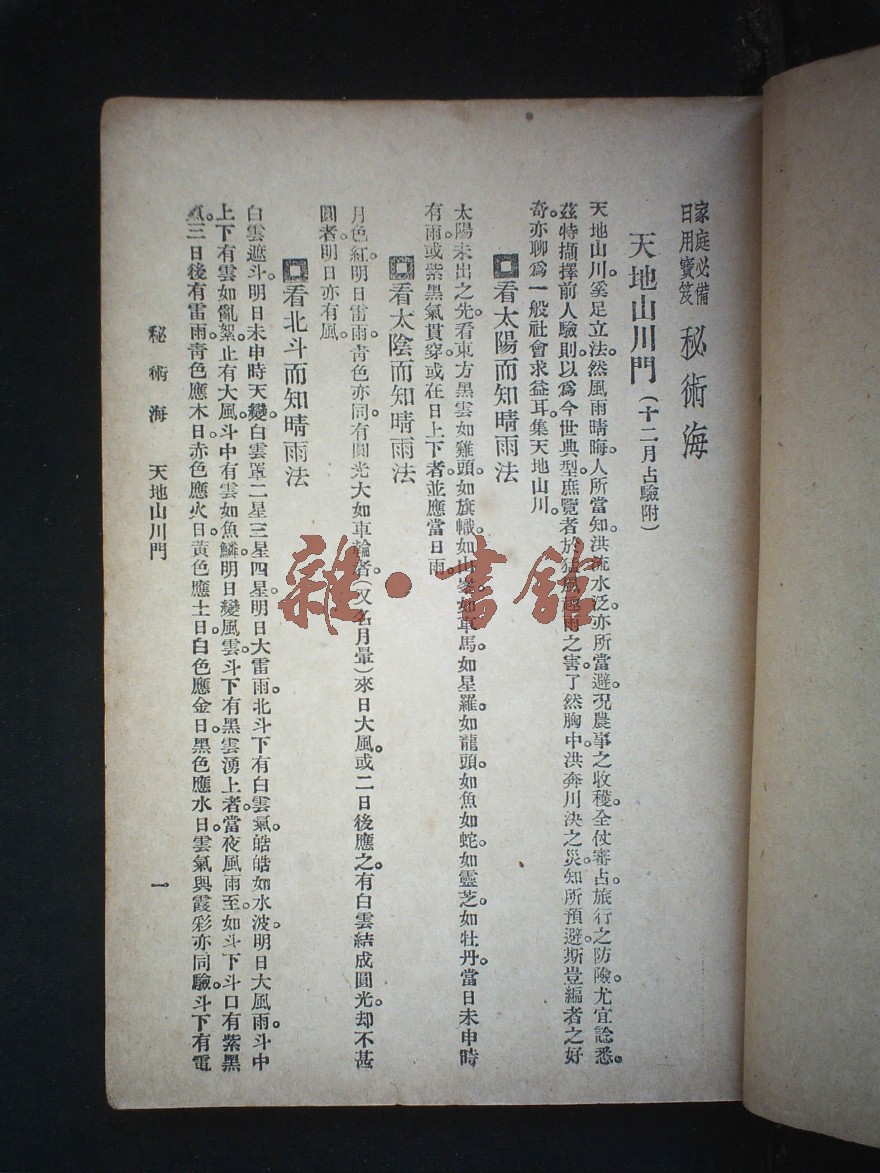 家庭必備
日用寶笈
秘術海
天地山川門(十二月占驗附)
天地山川。奚足立法。然風雨晴晦。人所當知。洪流水泛。亦所當避。况農事之收穫。全仗審占。旅行之防險。尤宜諗悉。
茲特擷擇前人驗則。以爲今世典型。庶覽者於猛風越雨之害。了然胸中。洪奔川決之災。知所預避。斯豈編者之好
奇。亦聊爲一般社會求益耳。集天地山川。
看太陽而知晴雨法
太陽未出之先。看東方黑雲如雞頭。如旗幟。如山峯。如車馬。如星羅。如龍頭。如魚如蛇。如靈芝。如牡丹。當日未申時
有雨。或紫黑氣貫穿。或在日上下者。並應當日雨。
看太陰而知晴雨法
月色紅。明日雷雨。靑色亦同。有圓光大如車輪者。(又名月暈)來日大風。或二日後應之。有白雲結成圓光。却不甚
圓者。明日亦有風。
看北斗而知晴雨法
白雲遮斗。明日未申時天變。白雲罩二星三星四星。明日大雷雨。北斗下有白雲氣。皓皓如水波。明日大風雨。斗中
上下有雲如亂絮。止有大風。斗中有雲如魚鱗。明日變風雲。斗下有黑雲湧上者。當夜風雨至。如斗下斗口有紫黑
氣。三日後有雷雨。靑色應木日。赤色應火日。黃色應土日。白色應金日。黑色應水日。雲氣與霞彩亦同驗。斗下有電
秘術海 天地山川門 一
雜·書館